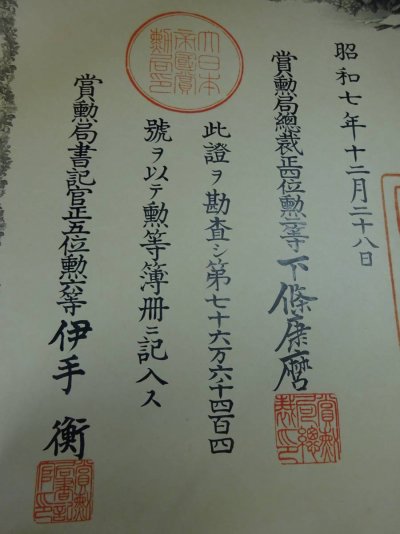 昭和七年十二月二十八日
賞勲局總裁正四位勲二等下條康麿
此證ヲ勘査シ第七十六万六千四百四
號ヲ以テ勲等簿冊ニ記入ス
賞勲局書記官正五位勲六等伊手衡
大日本
帝國賞
勲局印
賞勲
局總
裁印
賞勲
局書記
官印